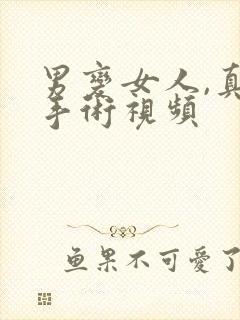 男變女人,真
手術視頻
鱼果不可愛了